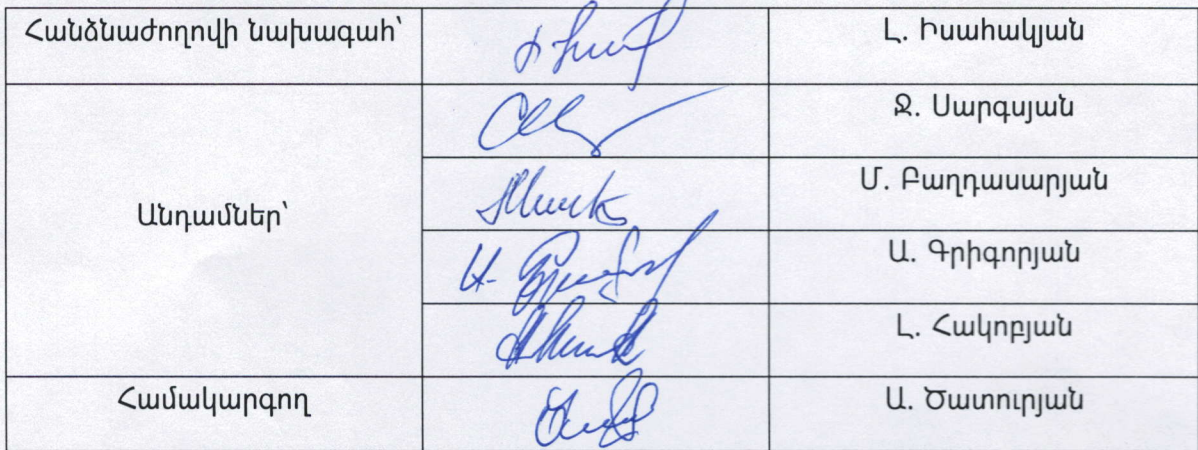 Հանձնաժողովի նախագահ՝
Լ. Իսահակյան
Ջ. Սարգսյան
Մ. Բաղդասարյան
Անդամներ՝
Ա. Գրիգորյան
Լ. Հակոբյան
Համակարգող
Ա. Ծատուրյան